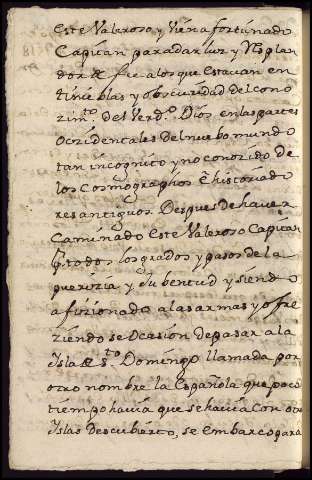 este Valeroso y Vien a fortunado
Capitan para dar luz y Rsplan
dor de fee a los que estauan en
tinieblas y obscuridad del cono
zimto. del Verdo. Dios en las partes
Oczidentales del nuebo mundo
tan incognito y no conozido de
los Cosmographos e historiado
res antiguos. Despues de hauer
Caminado este Valeroso Capitan
todos los grados y pasos de la
puerizia y Jubentud y siendo
afizionado a las armas y ofre
ziendose Ocasion de pasar a la
Isla de sto. Domingo llamada por
otro nombre la Española que poco
tiempo hauia que se hauia con otrs
Islas Descubierto, se embarco para